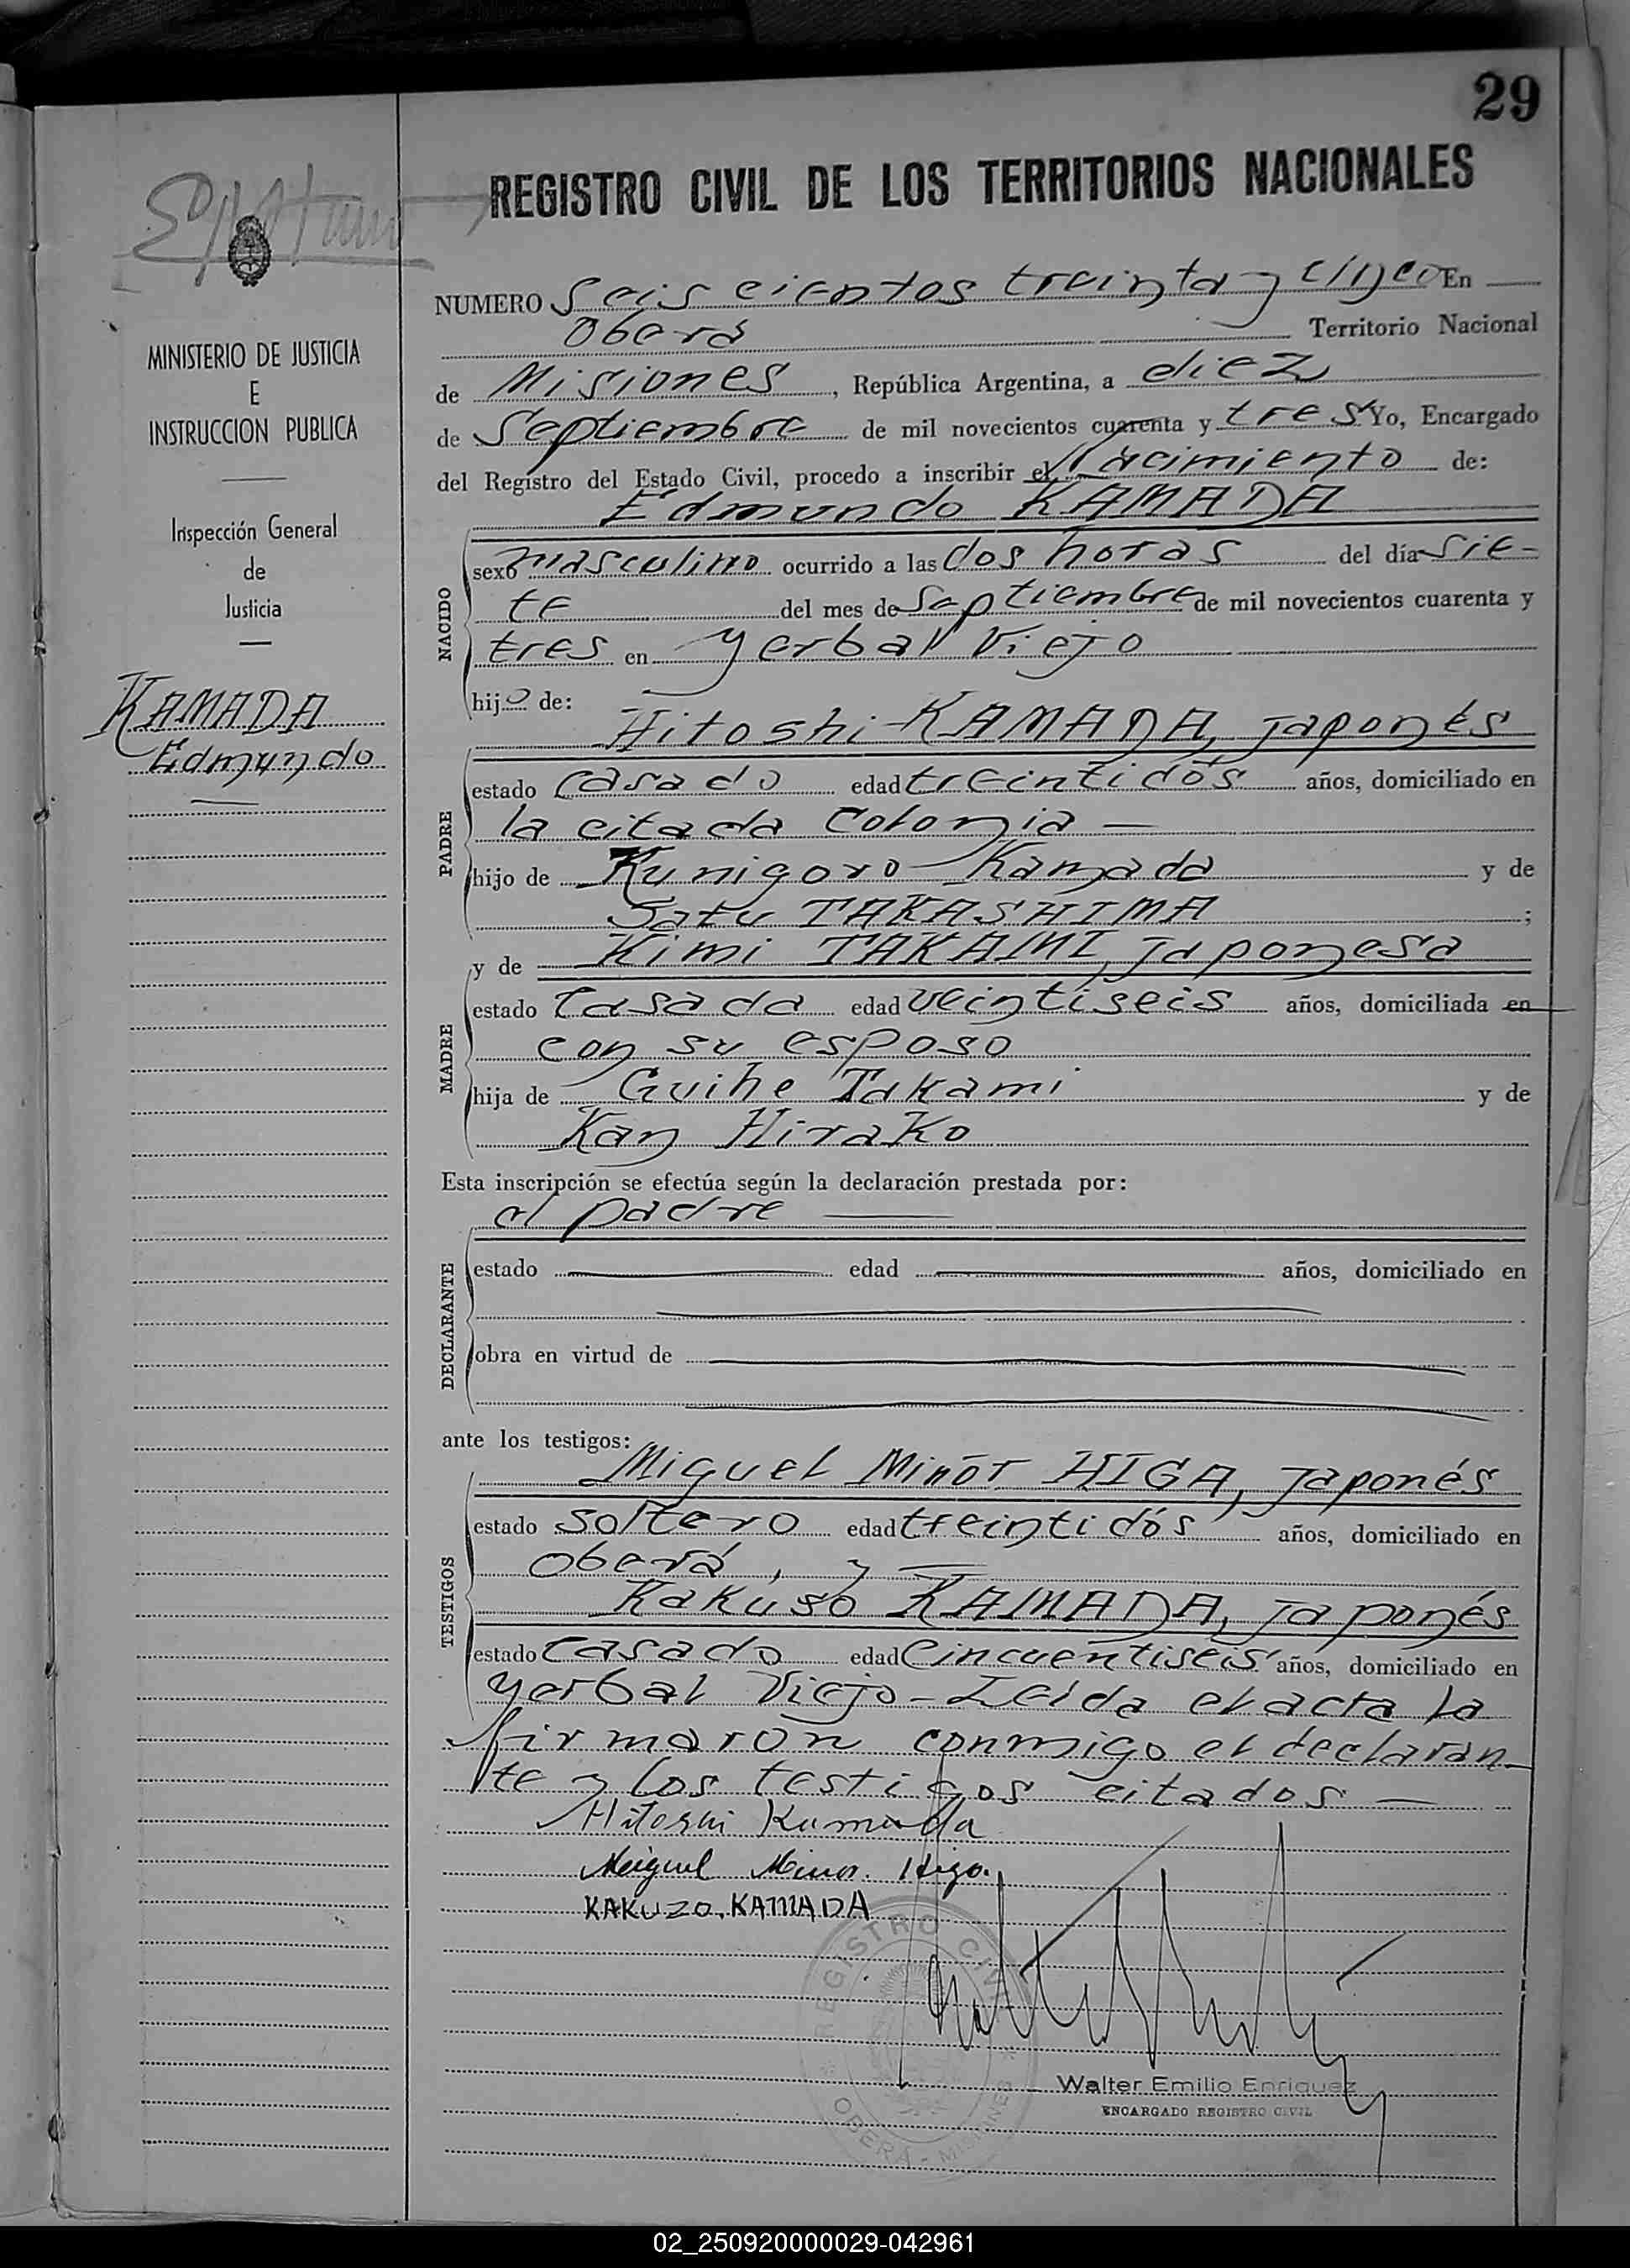 29
REGISTRO CIVIL DE LOS TERRITORIOS NACIONALES
MINISTERIO DE JUSTICIA
E
INSTRUCCION PUBLICA
Inspección General
de
Justicia
KAMADA
Edmundo
NUMERO Seis cientos treinta y cinco En
Oberá Territorio Nacional
de Misiones, República Argentina, a diez
de Septiembre de mil novecientos cuarenta y tres Yo, Encargado
del Registro del Estado Civil, procedo a inscribir el Nacimiento de:
Edmundo KAMADA
NACIDO
sexo masculino ocurrido a las dos horas del día sie-
te del mes de Septiembre de mil novecientos cuarenta y
tres en Yerbal Viejo
hijo de:
Hitoshi KAMADA, Japonés
PADRE
estado casado edad treintidós años, domiciliado en
la citada Colonia —
hijo de Kunigoro Kamada y de
Satu TAKASHIMA ;
y de Kimi TAKAMI, Japonesa
MADRE
estado Casada edad veintiseis años, domiciliada en
con su esposo
hija de Guihe Takami y de
Kan Hirako
Esta inscripción se efectúa según la declaración prestada por:
el padre —
DECLARANTE
estado edad años, domiciliado en
obra en virtud de
ante los testigos:
Miguel Minor HIGA, Japonés
TESTIGOS
estado soltero edad treintidós años, domiciliado en
Oberá, y
Kakuso KAMADA, Japonés
estado casado edad Cincuentiseis años, domiciliado en
Yerbal Viejo - Leida el acta la
firmaron conmigo el declaran-
te y los testigos citados —
Hitoshi Kamada
Meiguel Minor. Higa.
KAKUZO. KAMADA
REGISTRO CIVIL
OBERÁ - MISIONES
Walter Emilio Enriquez
ENCARGADO REGISTRO CIVIL
02_250920000029-042961